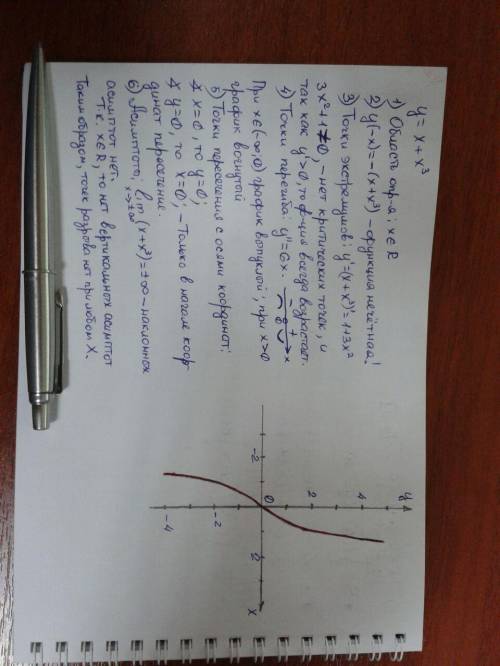 y = x + x³
1) Область опр-я: x∈R
2) y(-x) = -(x+x³) - функция нечётная!
3) Точки экстремумов: y' = (x+x³)' = 1+3x²
3x²+1≠0, - нет критических точек, и
так как y'>0, то ф-ция всегда возрастает.
4) Точки перегиба: y''=6x. - 0 + x
При x∈(-∞,0) график выпуклой; при x>0
график вогнутой
5) Точки пересечения с осями координат:
x=0, то y=0;
y=0, то x=0, - Только в начале коор-
динат пересечение.
6) Асимптота; lim x→±∞ (x+x³)=±∞ - наклонных
асимптот нет.
т.к. x∈R, то нет вертикальных асимптот
Таким образом, точек разрова нет при любом x.
y
4
2
-2 0 2 x
-2
-4